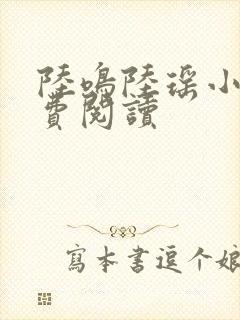 陸鳴陸瑶小
費閱讀
寫本書逗个娘